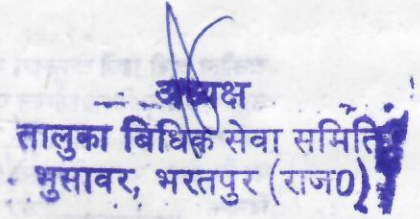 अध्यक्ष
तालुका बिधिक सेवा समिति
भुसावर, भरतपुर (राज0)